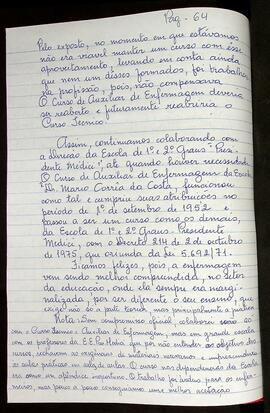 Pag - 64
Pelo exposto, no momento em que estávamos
não era viavel manter um curso com êsse
aproveitamento, levando em conta ainda
que nem um dêsses formados, foi trabalhar
na profissão, pois, não compensava.
O Curso de Auxiliar de Enfermagem deveria
ser reaberto e futuramente reabriria o
Curso Tecnico.
Assim, continuamos colaborando com
a Direcão da Escola de 1º e 2º Graus "Presi-
dente Médici", até quando houver necessidade
O Curso de Auxiliar de Enfermagem da Escola
"Dr. Mario Corrêa da Costa, funcionou
como tal e cumpriu suas atribuições no
período de 1º de setembro de 1952 e
passou a ser um curso como os demais,
da Escola de 1º e 2º Graus - Presidente
Médici, com o Decreto 214 de 2 de outubro
de 1975, que oriunda da Lei 5.692/71.
Ficamos felizes, pois a enfermagem
vem sendo melhor compreendida, no setor
da educação, onde ela sempre era margi-
nalizada, por ser diferente o seu ensino, que
exige não só a parte teórica, mas principalmente a prática
Nota: Sem compromisso oficial, colaborei
com o Curso Técnico e Auxiliar de Enfermagem, mas em grande
com os professores da E.E.P. Médici que por não entender os objetivos dos
cursos, achavam as
as aulas práticas em sala de aulas. O curso nas dependencias da Escola
era como um apêndice incomodo. O trabalho foi árduo para os enfer-
meiros, mas pouco a pouco conseguiamos uma melhor aceitação